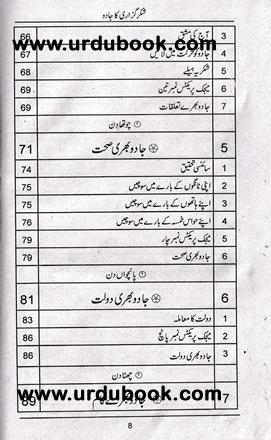 شکرگزاری کا جادو
3 آج کی مشق 66
www.urdubook.com
4 جادو کو حرکت میں لائیں 67
5 شکریہ پہلے 68
6 میجک پریکٹس نمبر تین 69
7 جادو بھرے تعلقات 69
چوتھا دن
5 جادو بھری صحت 71
1 سائنسی تحقیق 74
2 اپنی ٹانگوں کے بارے میں سوچیں 75
3 اپنے ہاتھوں کے بارے میں سوچیں 75
4 اپنے حواس خمسہ کے بارے میں سوچیں 76
5 میجک پریکٹس نمبر چار 79
6 جادو بھری صحت 79
پانچواں دن
6 جادو بھری دولت 81
1 دولت کا معاملہ 83
2 میجک پریکٹس نمبر پانچ 86
3 جادو بھری دولت 86
چھٹا دن
www.urdubook.com
7 جادو بھرے کام 89
8